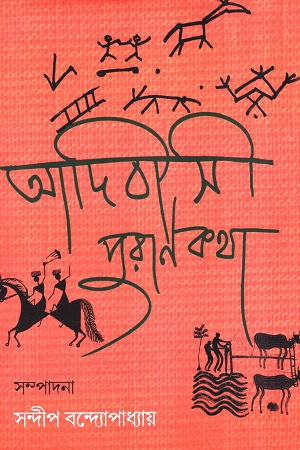 আদিবাসী
পুরাণকথা
সম্পাদনা
সন্দীপ বন্দ্যোপাধ্যায়